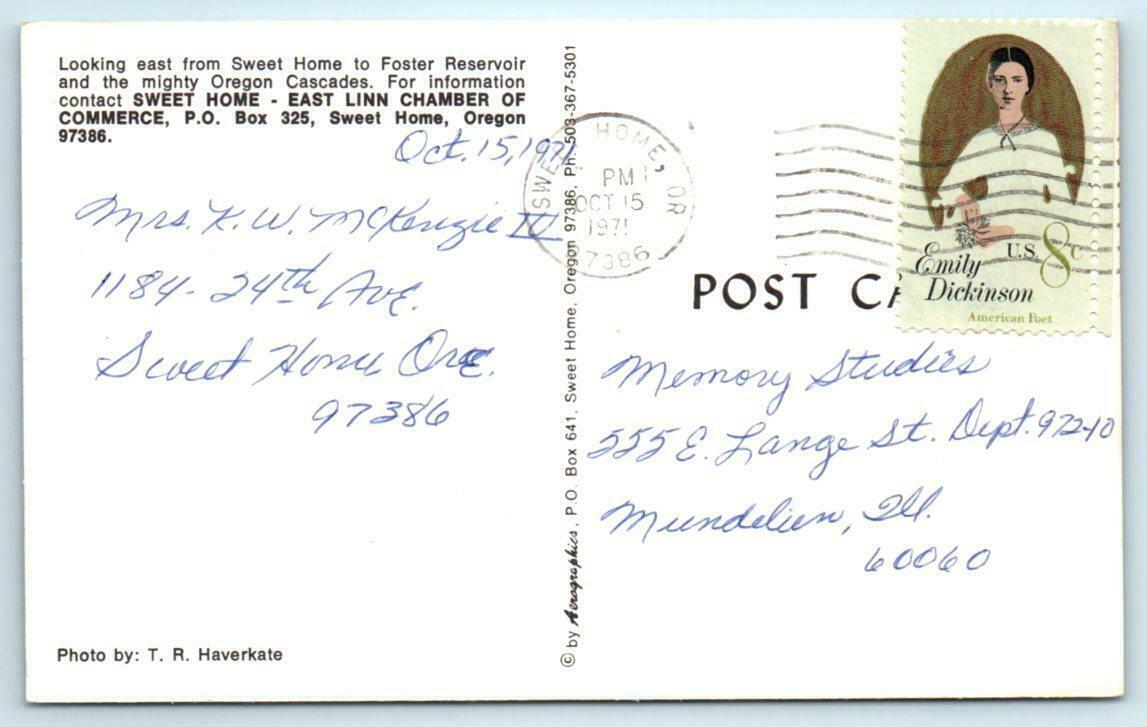 Looking east from Sweet Home to Foster Reservoir
and the mighty Oregon Cascades. For information
contact SWEET HOME - EAST LINN CHAMBER OF
COMMERCE, P.O. Box 325, Sweet Home, Oregon
97386.
Oct. 15, 1971
Mrs. K. W. McKenzie IV
1184 - 24th Ave.
Sweet Home Ore.
97386
Photo by: T. R. Haverkate
© by Aerographics, P.O. Box 641, Sweet Home, Oregon 97386, Ph. 503-367-5301
SWEET HOME, OR
PM
OCT 15
1971
97386
Emily
Dickinson
U.S. 8c
American Poet
POST CA
Memory Studies
555 E. Lange St. Dept. 972-10
Mundelien, Ill.
60060